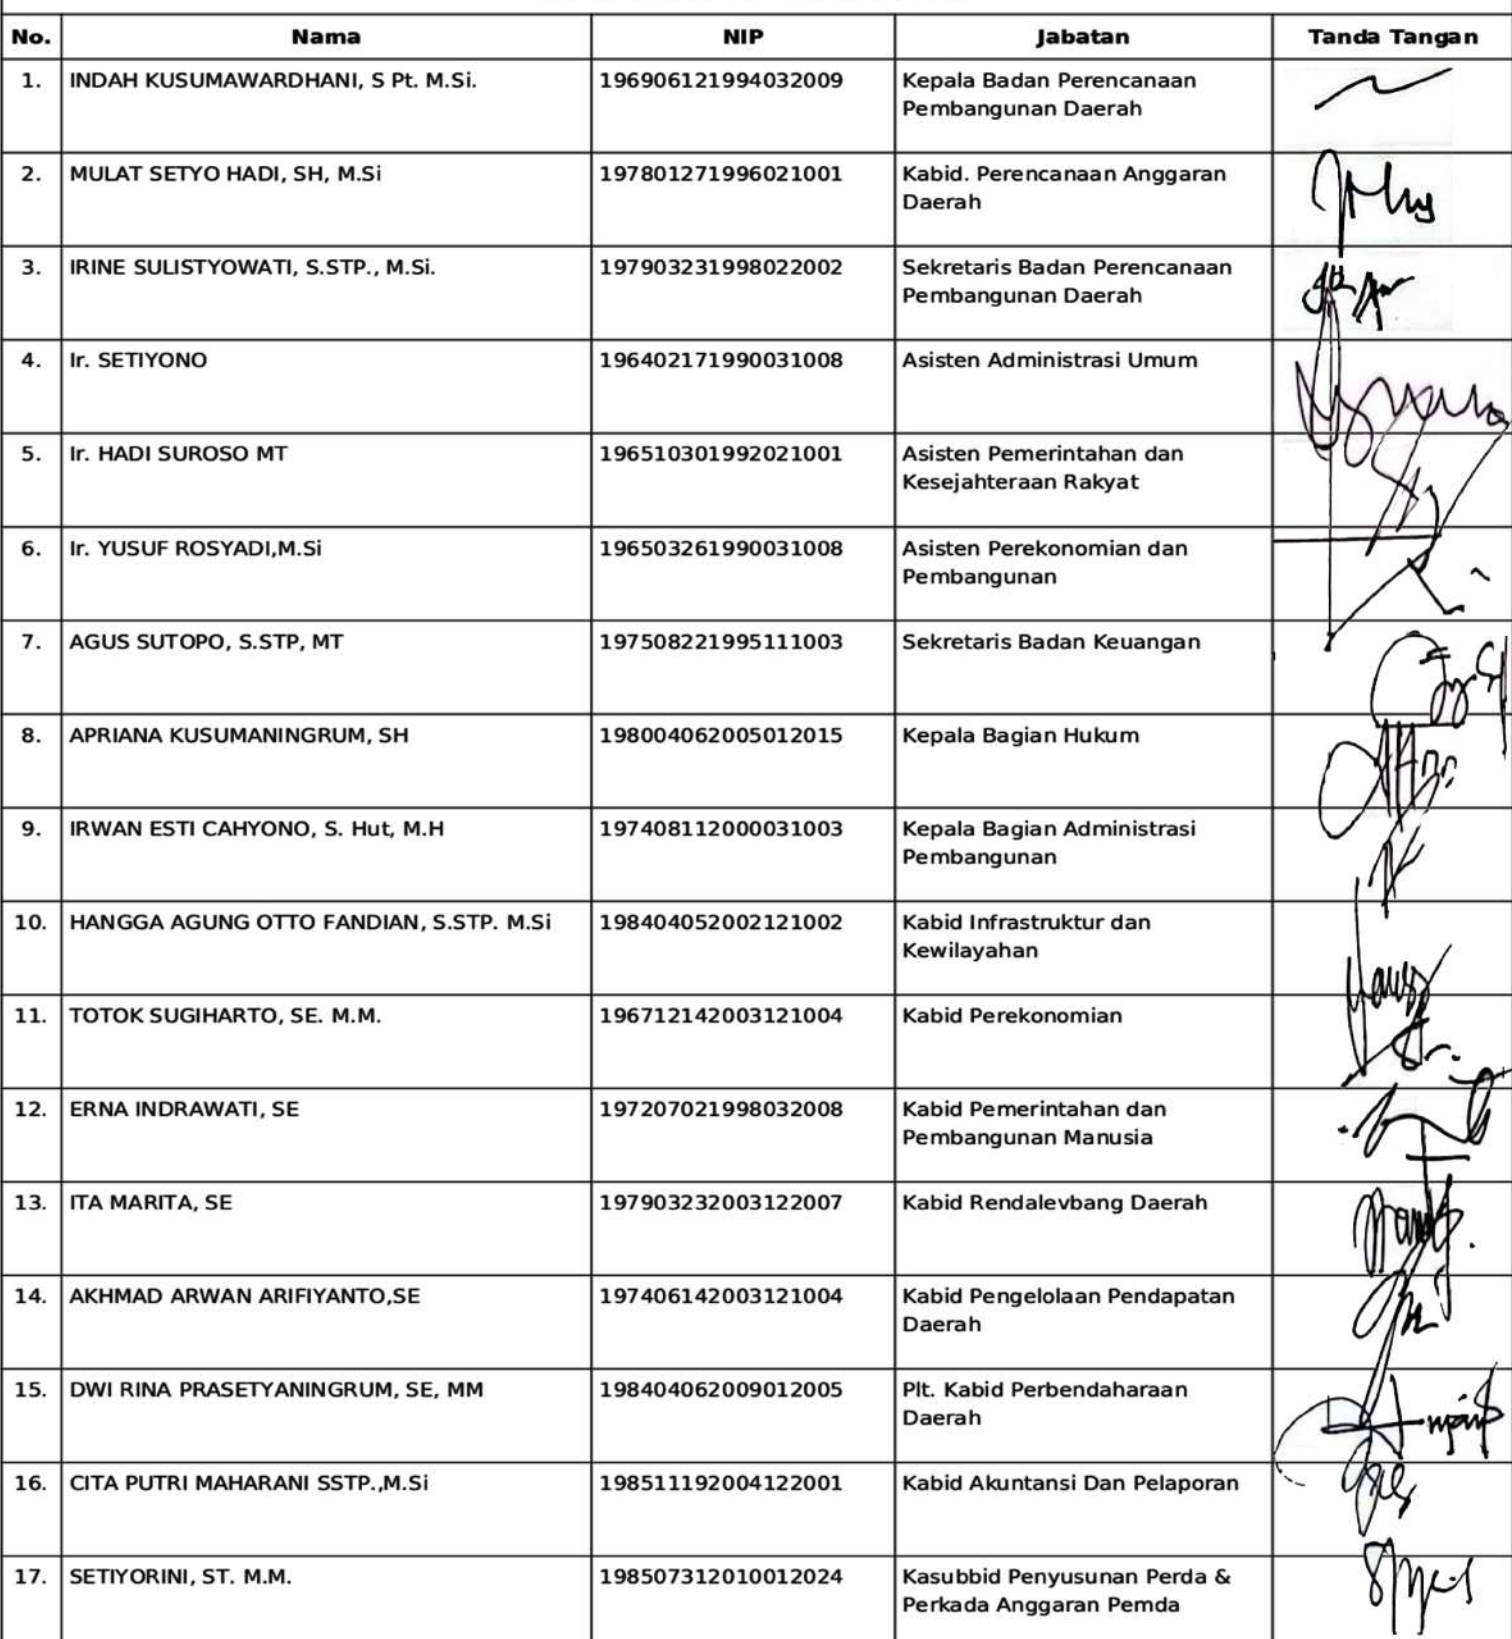 No. Nama NIP Jabatan Tanda Tangan
1. INDAH KUSUMAWARDHANI, S Pt. M.Si. 196906121994032009 Kepala Badan Perencanaan
Pembangunan Daerah
2. MULAT SETYO HADI, SH, M.Si 197801271996021001 Kabid. Perencanaan Anggaran
Daerah
3. IRINE SULISTYOWATI, S.STP., M.Si. 197903231998022002 Sekretaris Badan Perencanaan
Pembangunan Daerah
4. Ir. SETIYONO 196402171990031008 Asisten Administrasi Umum
5. Ir. HADI SUROSO MT 196510301992021001 Asisten Pemerintahan dan
Kesejahteraan Rakyat
6. Ir. YUSUF ROSYADI,M.Si 196503261990031008 Asisten Perekonomian dan
Pembangunan
7. AGUS SUTOPO, S.STP, MT 197508221995111003 Sekretaris Badan Keuangan
8. APRIANA KUSUMANINGRUM, SH 198004062005012015 Kepala Bagian Hukum
9. IRWAN ESTI CAHYONO, S. Hut, M.H 197408112000031003 Kepala Bagian Administrasi
Pembangunan
10. HANGGA AGUNG OTTO FANDIAN, S.STP. M.Si 198404052002121002 Kabid Infrastruktur dan
Kewilayahan
11. TOTOK SUGIHARTO, SE. M.M. 196712142003121004 Kabid Perekonomian
12. ERNA INDRAWATI, SE 197207021998032008 Kabid Pemerintahan dan
Pembangunan Manusia
13. ITA MARITA, SE 197903232003122007 Kabid Rendalevbang Daerah
14. AKHMAD ARWAN ARIFIYANTO,SE 197406142003121004 Kabid Pengelolaan Pendapatan
Daerah
15. DWI RINA PRASETYANINGRUM, SE, MM 198404062009012005 Plt. Kabid Perbendaharaan
Daerah
16. CITA PUTRI MAHARANI SSTP.,M.Si 198511192004122001 Kabid Akuntansi Dan Pelaporan
17. SETIYORINI, ST. M.M. 198507312010012024 Kasubbid Penyusunan Perda &
Perkada Anggaran Pemda